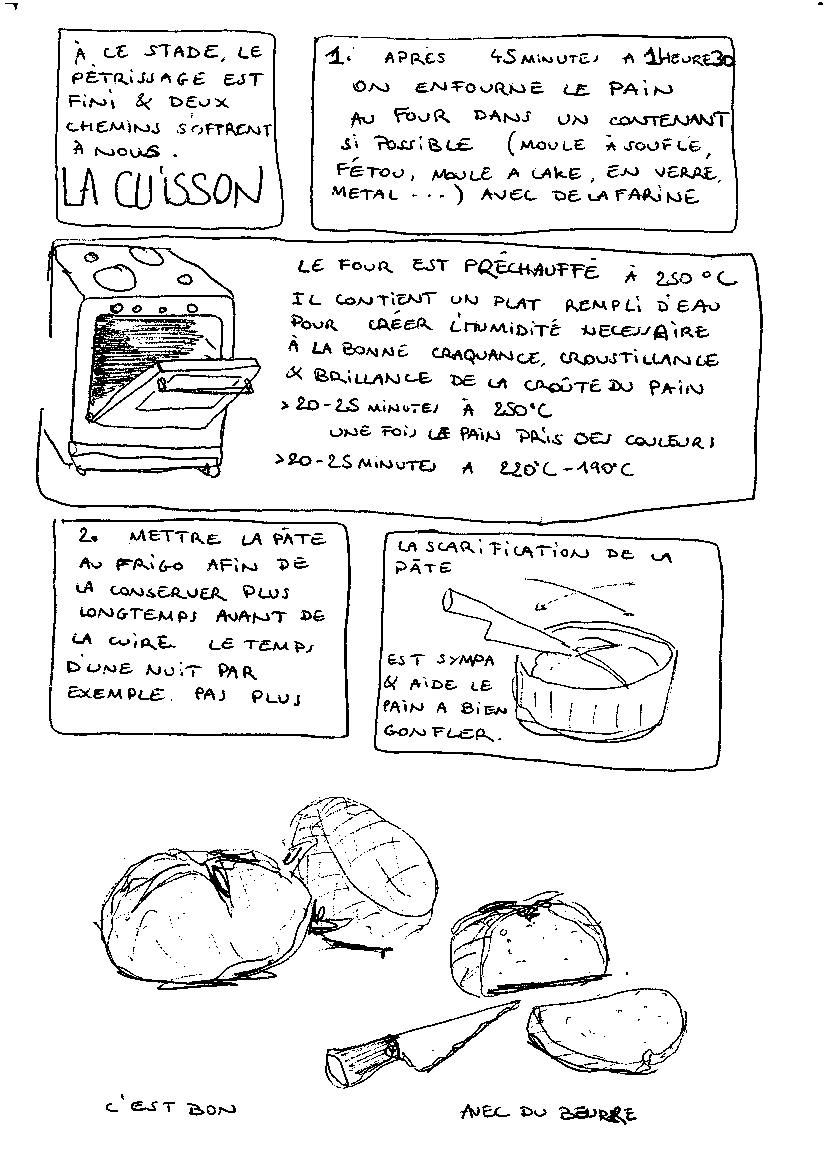 À CE STADE, LE
PÉTRISSAGE EST
FINI & DEUX
CHEMINS S'OFFRENT
À NOUS.
LA CUISSON
1. APRÈS 45 MINUTES A 1HEURE30
ON ENFOURNE LE PAIN
AU FOUR DANS UN CONTENANT
SI POSSIBLE (MOULE À SOUFLE,
FÉTOU, MOULE A CAKE, EN VERRE,
METAL ...) AVEC DE LA FARINE
LE FOUR EST PRÉCHAUFFÉ À 250°C
IL CONTIENT UN PLAT REMPLI D'EAU
POUR CRÉER L'HUMIDITÉ NECESSAIRE
À LA BONNE CRAQUANCE, CROUSTILLANCE
& BRILLANCE DE LA CROÛTE DU PAIN
>20-25 MINUTES À 250°C
UNE FOIS LE PAIN PRIS DES COULEURS
>20-25 MINUTES A 220°C-190°C
2. METTRE LA PÂTE
AU FRIGO AFIN DE
LA CONSERVER PLUS
LONGTEMPS AVANT DE
LA CUIRE. LE TEMPS
D'UNE NUIT PAR
EXEMPLE. PAS PLUS
LA SCARIFICATION DE LA
PÂTE
EST SYMPA
& AIDE LE
PAIN A BIEN
GONFLER.
C'EST BON
AVEC DU BEURRE